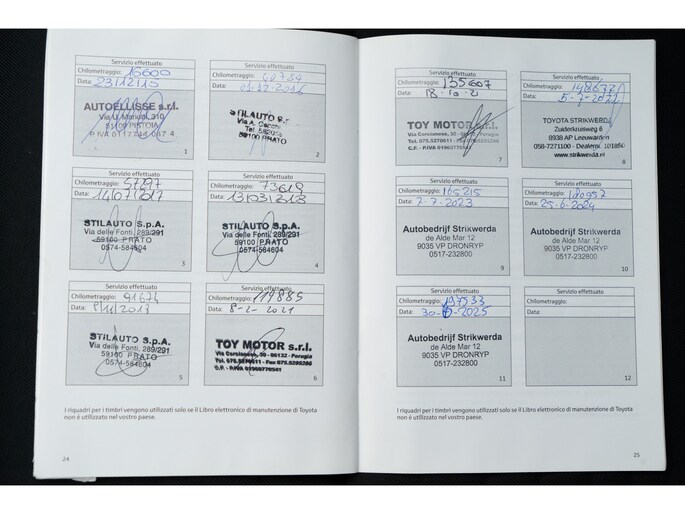 Servizio effettuato
Chilometraggio: 16600
Data: 23/12/15
AUTOELLISSE s.r.l.
51100 PISTOIA
1
Servizio effettuato
Chilometraggio: 40784
Data:
STILAUTO S.
59100 PRATO
2
Servizio effettuato
Chilometraggio: 57297
Data: 14/07/2017
STILAUTO S.p.A.
Via delle Fonti, 289/291
59100 PRATO
0574-564604
3
Servizio effettuato
Chilometraggio: 73619
Data: 13/03/2018
STILAUTO S.p.A.
Via delle Fonti, 289/291
59100 PRATO
0574-564604
4
Servizio effettuato
Chilometraggio: 91674
Data:
STILAUTO S.p.A.
Via delle Fonti, 289/291
59100 PRATO
0574-564604
5
Servizio effettuato
Chilometraggio: 119885
Data: 8-2-2021
TOY MOTOR s.r.l.
Via Corcianese, 30 - 06132 - Perugia
6
I riquadri per i timbri vengono utilizzati solo se il Libro elettronico di manutenzione di Toyota
non è utilizzato nel vostro paese.
24
Servizio effettuato
Chilometraggio: 135607
Data: 18-10-21
TOY MOTOR s.r.l.
7
Servizio effettuato
Chilometraggio:
Data: 5-7-2022
TOYOTA STRIKWERDA
Zuiderkruisweg 6
8938 AP Leeuwarden
www.strikwerda.nl
8
Servizio effettuato
Chilometraggio: 165215
Data: 7-7-2023
Autobedrijf Strikwerda
de Alde Mar 12
9035 VP DRONRYP
0517-232800
9
Servizio effettuato
Chilometraggio: 180957
Data: 25-6-2024
Autobedrijf Strikwerda
de Alde Mar 12
9035 VP DRONRYP
0517-232800
10
Servizio effettuato
Chilometraggio: 197533
Data:
Autobedrijf Strikwerda
de Alde Mar 12
9035 VP DRONRYP
0517-232800
11
Servizio effettuato
Chilometraggio:
Data:
12
I riquadri per i timbri vengono utilizzati solo se il Libro elettronico di manutenzione di Toyota
non è utilizzato nel vostro paese.
25